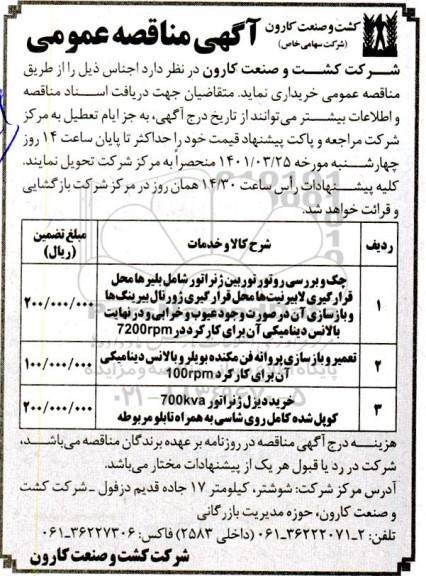 کشت و صنعت کارون
(شرکت سهامی خاص)
آگهی مناقصه عمومی
شرکت کشت و صنعت کارون در نظر دارد اجناس ذیل را از طریق
مناقصه عمومی خریداری نماید. متقاضیان جهت دریافت اسناد مناقصه
و اطلاعات بیشتر می‌توانند از تاریخ درج آگهی، به جز ایام تعطیل به مرکز
شرکت مراجعه و پاکت پیشنهاد قیمت خود را حداکثر تا پایان ساعت ۱۴ روز
چهارشنبه مورخه ۱۴۰۱/۰۳/۲۵ منحصراً به مرکز شرکت تحویل نمایند.
کلیه پیشنهادات رأس ساعت ۱۴/۳۰ همان روز در مرکز شرکت بازگشایی
و قرائت خواهد شد.
ردیف
شرح کالا و خدمات
مبلغ تضمین
(ریال)
۱
چک و بررسی روتور توربین ژنراتور شامل بلیرها محل
قرارگیری لابیرنیت‌ها محل قرارگیری ژورنال بیرینگ‌ها
و بازسازی آن در صورت وجود عیوب و خرابی و در نهایت
بالانس دینامیکی آن برای کارکرد در 7200rpm
۲۰۰/۰۰۰/۰۰۰
۲
تعمیر و بازسازی پروانه فن مکنده بویلر و بالانس دینامیکی
آن برای کارکرد 100rpm
۱۰۰/۰۰۰/۰۰۰
۳
خرید دیزل ژنراتور 700kva
کوپل شده کامل روی شاسی به همراه تابلو مربوطه
۲۰۰/۰۰۰/۰۰۰
هزینه درج آگهی مناقصه در روزنامه بر عهده برندگان مناقصه می‌باشد،
شرکت در رد یا قبول هر یک از پیشنهادات مختار می‌باشد.
آدرس مرکز شرکت: شوشتر، کیلومتر ۱۷ جاده قدیم دزفول ـ شرکت کشت
و صنعت کارون، حوزه مدیریت بازرگانی
تلفن: ۲ـ۳۶۲۲۲۰۷۱ـ۰۶۱ (داخلی ۲۵۸۳) فاکس: ۳۶۲۲۷۳۰۶ـ۰۶۱
شرکت کشت و صنعت کارون